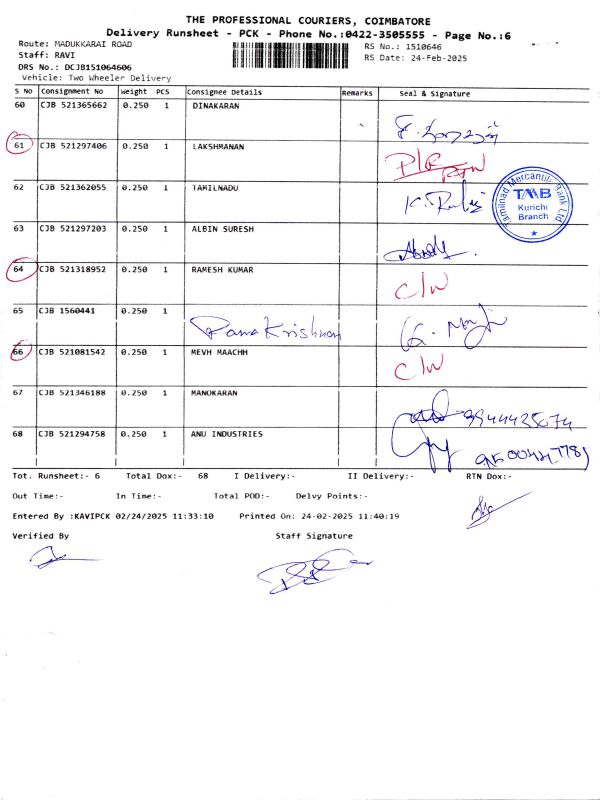 THE PROFESSIONAL COURIERS, COIMBATORE
Delivery Runsheet - PCK - Phone No.:0422-3505555 - Page No.:6
Route: MADUKKARAI ROAD RS No.: 1510646
Staff: RAVI RS Date: 24-Feb-2025
DRS No.: DCJB151064606
Vehicle: Two Wheeler Delivery
S No Consignment No Weight PCS Consignee Details Remarks Seal & Signature
60 CJB 521365662 0.250 1 DINAKARAN
61 CJB 521297406 0.250 1 LAKSHMANAN
62 CJB 521362055 0.250 1 TAMILNADU
Tamilnad Mercantile Bank Ltd.
TMB
Kurichi
Branch
63 CJB 521297203 0.250 1 ALBIN SURESH
64 CJB 521318952 0.250 1 RAMESH KUMAR C/W
65 CJB 1560441 0.250 1 Rama Krishnan
66 CJB 521081542 0.250 1 MEVH MAACHH C/W
67 CJB 521346188 0.250 1 MANOKARAN
68 CJB 521294758 0.250 1 ANU INDUSTRIES
Tot. Runsheet:- 6 Total Dox:- 68 I Delivery:- II Delivery:- RTN Dox:-
Out Time:- In Time:- Total POD:- Delvy Points:-
Entered By :KAVIPCK 02/24/2025 11:33:10 Printed On: 24-02-2025 11:40:19
Verified By Staff Signature